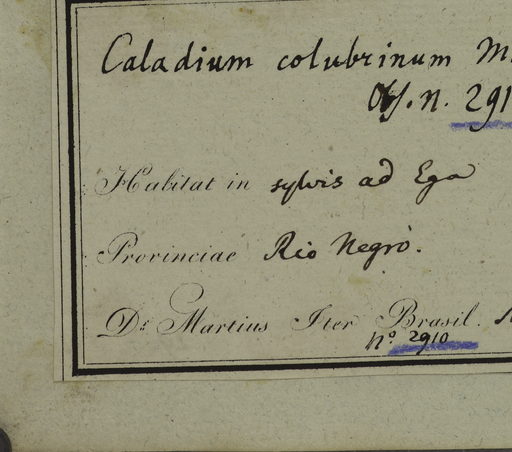 Caladium colubrinum M.
Obs. n. 291
Habitat in sylvis ad Ega
Provinciae Rio Negro.
Dr. Martius Iter Brasil.
no 2910